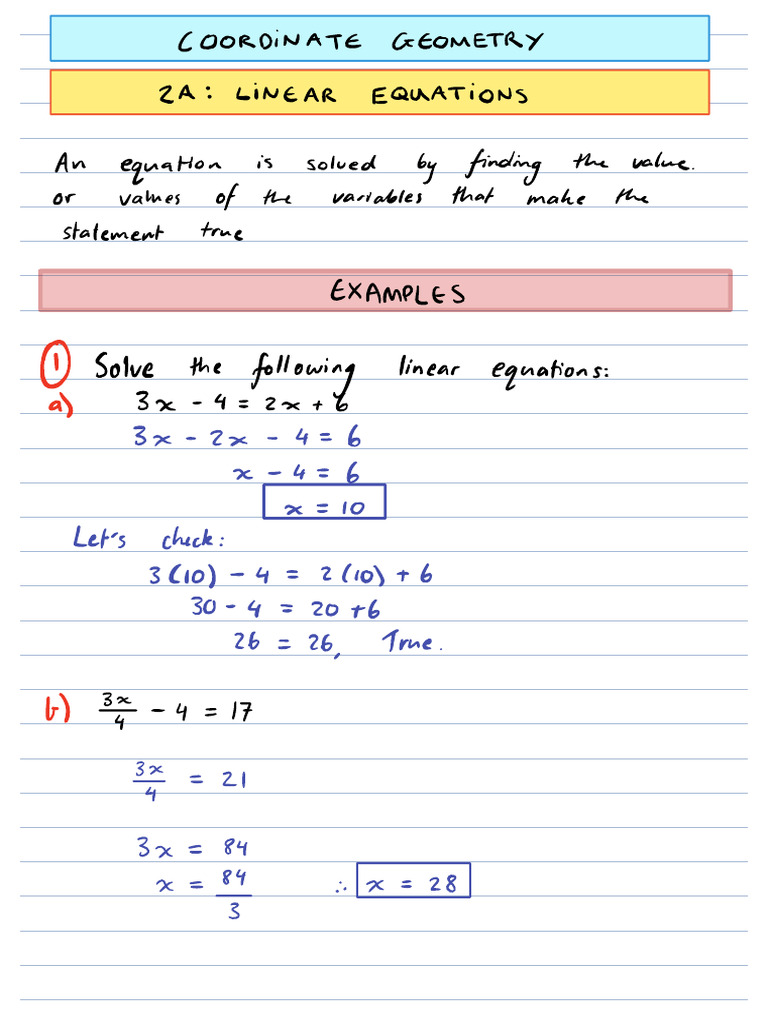 COORDINATE GEOMETRY
2A: LINEAR EQUATIONS
An equation is solved by finding the value.
or values of the variables that make the
statement true
EXAMPLES
① Solve the following linear equations:
a) 3x - 4 = 2x + 6
3x - 2x - 4 = 6
x - 4 = 6
x = 10
Let's check:
3(10) - 4 = 2(10) + 6
30 - 4 = 20 + 6
26 = 26, True.
b) 3x/4 - 4 = 17
3x/4 = 21
3x = 84
x = 84/3 ∴ x = 28